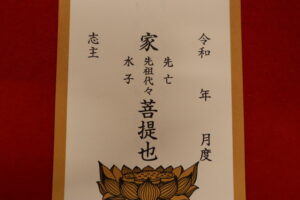 令和 年 月度
先亡
家 先祖代々 菩提也
水子
志主